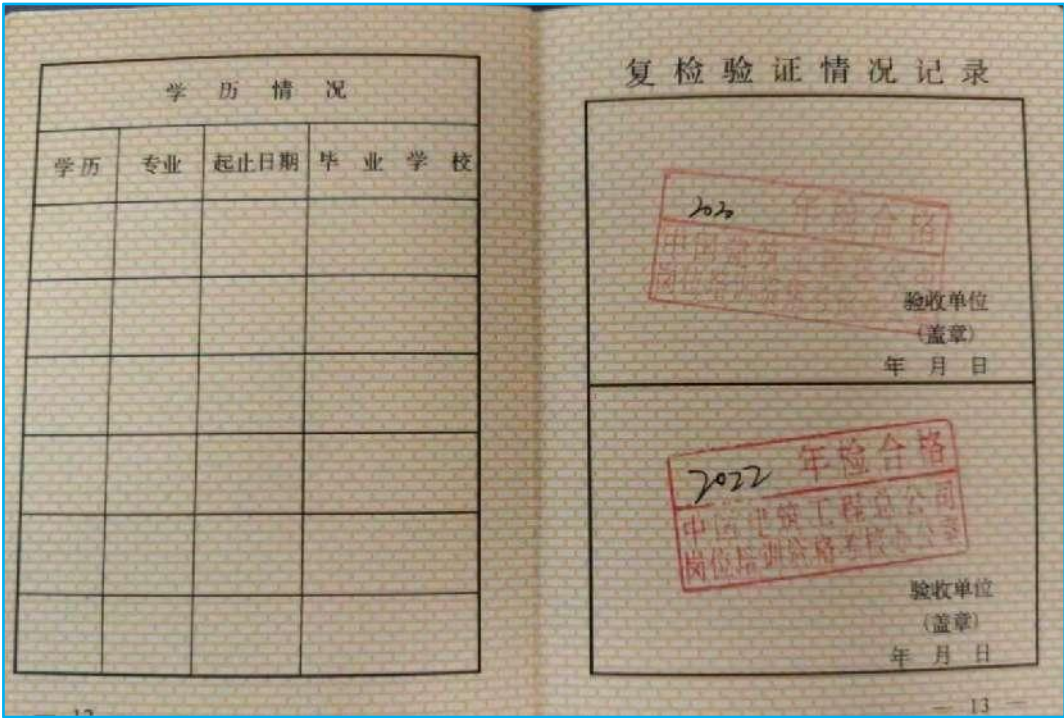 学历情况
学历 专业 起止日期 毕业学校
— 12
复检验证情况记录
2020 年检合格
中国建筑工程总公司
验收单位
(盖章)
年 月 日
2022 年检合格
中国建筑工程总公司
岗位培训资格考核办公室
验收单位
(盖章)
年 月 日
— 13 —